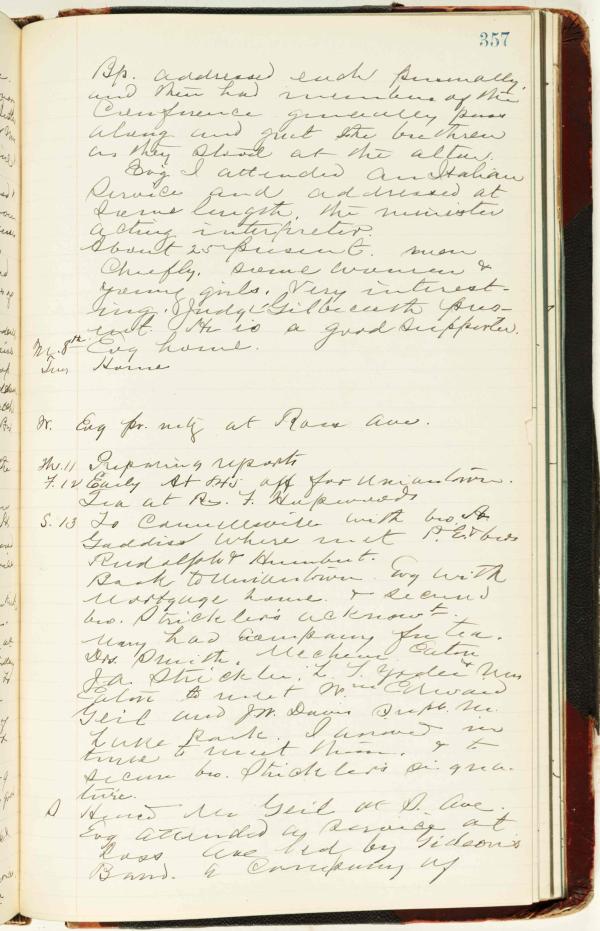 357
Bp. addressed each personally
and then had members of the
Conference generally pass
along and greet the brethren
as they stood at the altar.
Evg I attended an Italian
service and addressed at
some length, the minister
acting interpreter.
About 25 present. men
Chiefly. some women &
young girls. Very interest-
ing. Judge Gilbreath pres-
ent. He is a good supporter.
M. 8th Evg home.
Tues Home
W. Evg pr. mtg at Ross Ave.
Th. 11 Preparing reports
F. 12 Early at 7:45 off for Uniontown.
Tea at Rev. F. Hopwoods
S. 13 To Connellsville with bro. A
Gaddis where met P. E. & bros
Rudolph & Humbert.
Back to Uniontown. Evg with
mortgage home. & secure
bro. Stricklers acknowt.
Mary had company for tea.
Drs. Smith, Mechem, Eaton
J. A. Strickler, L. S. Yoder & Mrs
Eaton to meet Wm Edward
Geil and J. W. Davis Supt. Mt.
Lake Park. I arrived in
time to meet them. & to
secure bro. Strickler's signa-
ture.
S Heard Mr Geil at S. Ave.
Evg attended a service at
Ross Ave led by Gideon's
Band. a company of